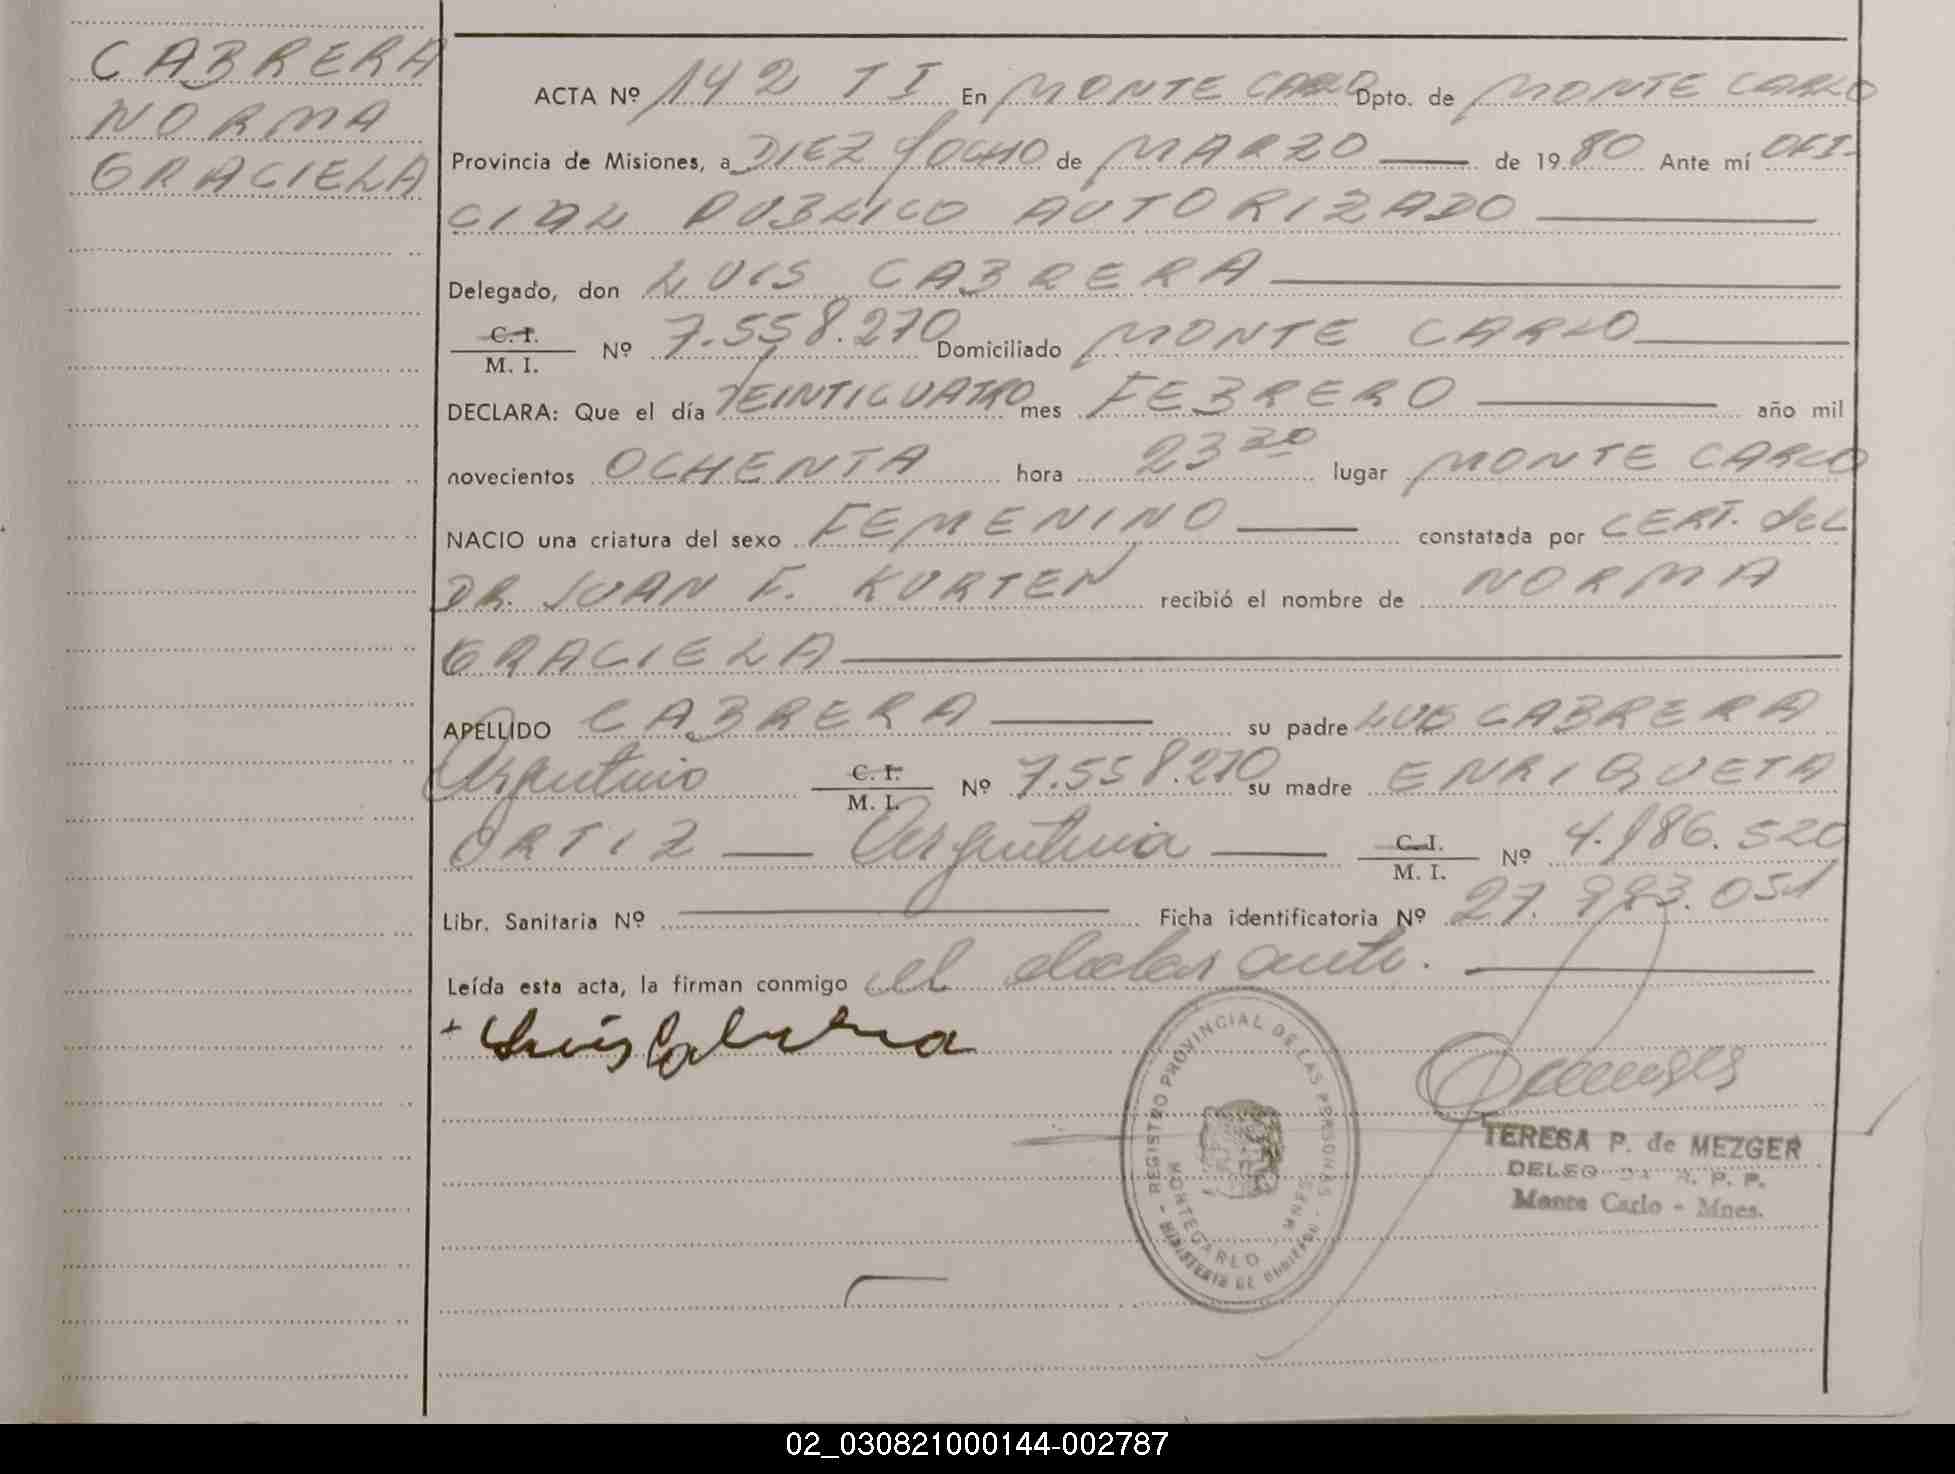 CABRERA
NORMA
GRACIELA
ACTA Nº 142 T I En MONTE CARLO Dpto. de MONTE CARLO
Provincia de Misiones, a DIEZ Y OCHO de MARZO de 1980 Ante mí OFI-
CIAL PUBLICO AUTORIZADO
Delegado, don LUIS CABRERA
C. I.
M. I. Nº 7.558.270 Domiciliado MONTE CARLO
DECLARA: Que el día VEINTICUATRO mes FEBRERO año mil
novecientos OCHENTA hora 23 30 lugar MONTE CARLO
NACIO una criatura del sexo FEMENINO constatada por CERT. del
DR. JUAN F. KURTEN recibió el nombre de NORMA
GRACIELA
APELLIDO CABRERA su padre LUIS CABRERA
Argentino C. I.
M. I. Nº 7.558.270 su madre ENRIQUETA
ORTIZ Argentina C. I.
M. I. Nº 4.186.520
Libr. Sanitaria Nº Ficha identificatoria Nº 27. 051
Leída esta acta, la firman conmigo el declarante.
+ Luis Cabrera
REGISTRO PROVINCIAL DE LAS PERSONAS
MONTECARLO MNES
MINISTERIO DE GOBIERNO
TERESA P. de MEZGER
R. P. P.
Monte Carlo - Mnes.
02_030821000144-002787